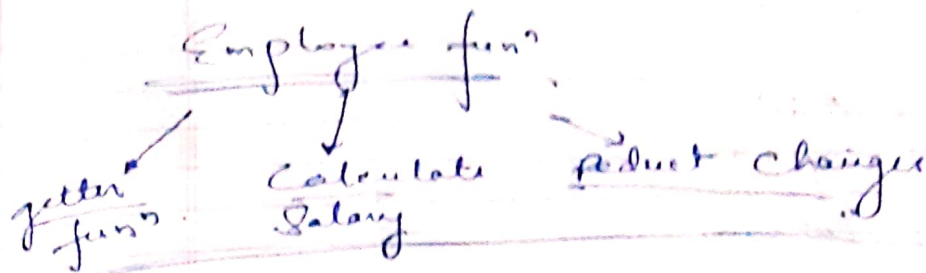 Employee funⁿ
getter funⁿ
Calculate Salary
Product Changes